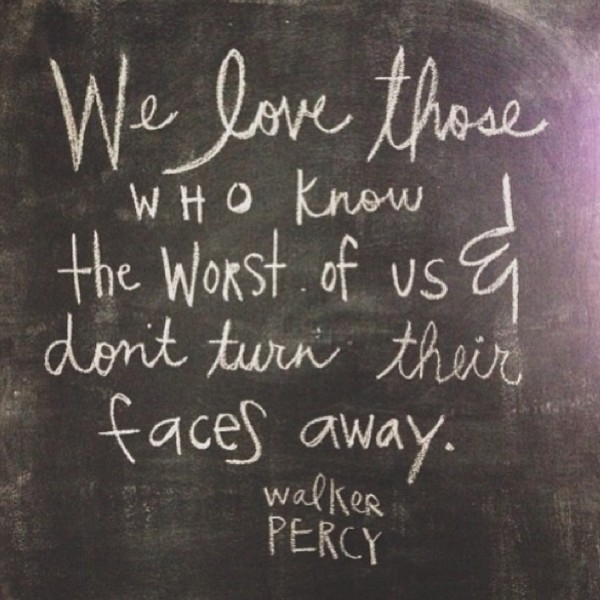 We love those
WHO know
the WORST of us &
don't turn their
faces away.
walker
PERCY